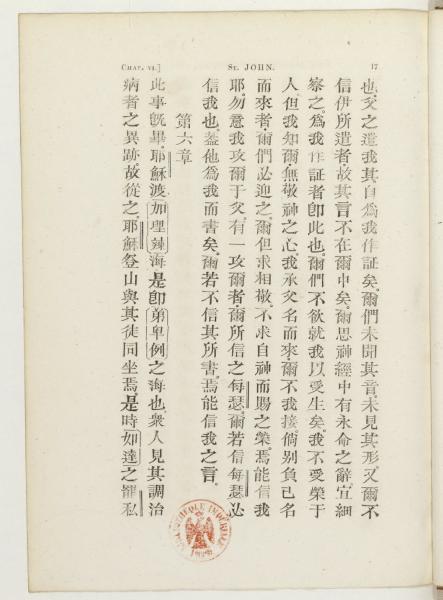 CHAP. VI.]
ST. JOHN.
17
也。父之遣我其自爲我作証矣。爾們未聞其音。未見其形。又爾不
信伊所遣者。故其言不在爾中矣。爾思神經中有永命之辭。宜細
察之。爲我作証者卽此也。爾們不欲就我以受生矣。我不受榮于
人。但我知爾無敬神之心。我承父名而來。爾不我接。倘別負己名
而來者。爾們必迎之。爾但求相敬。不求自神而賜之榮。焉能信我
耶。勿意我攻爾于父。有一攻爾者。爾所信之每瑟。爾若信每瑟必
信我也。葢他爲我而書矣。爾若不信其所書。焉能信我之言。
第六章
此事旣畢。耶穌渡加理㘓海。是卽弟卑例之海也。衆人見其調治
病者之異跡。故從之。耶穌登山。與其徒同坐焉。是時如達之罷私